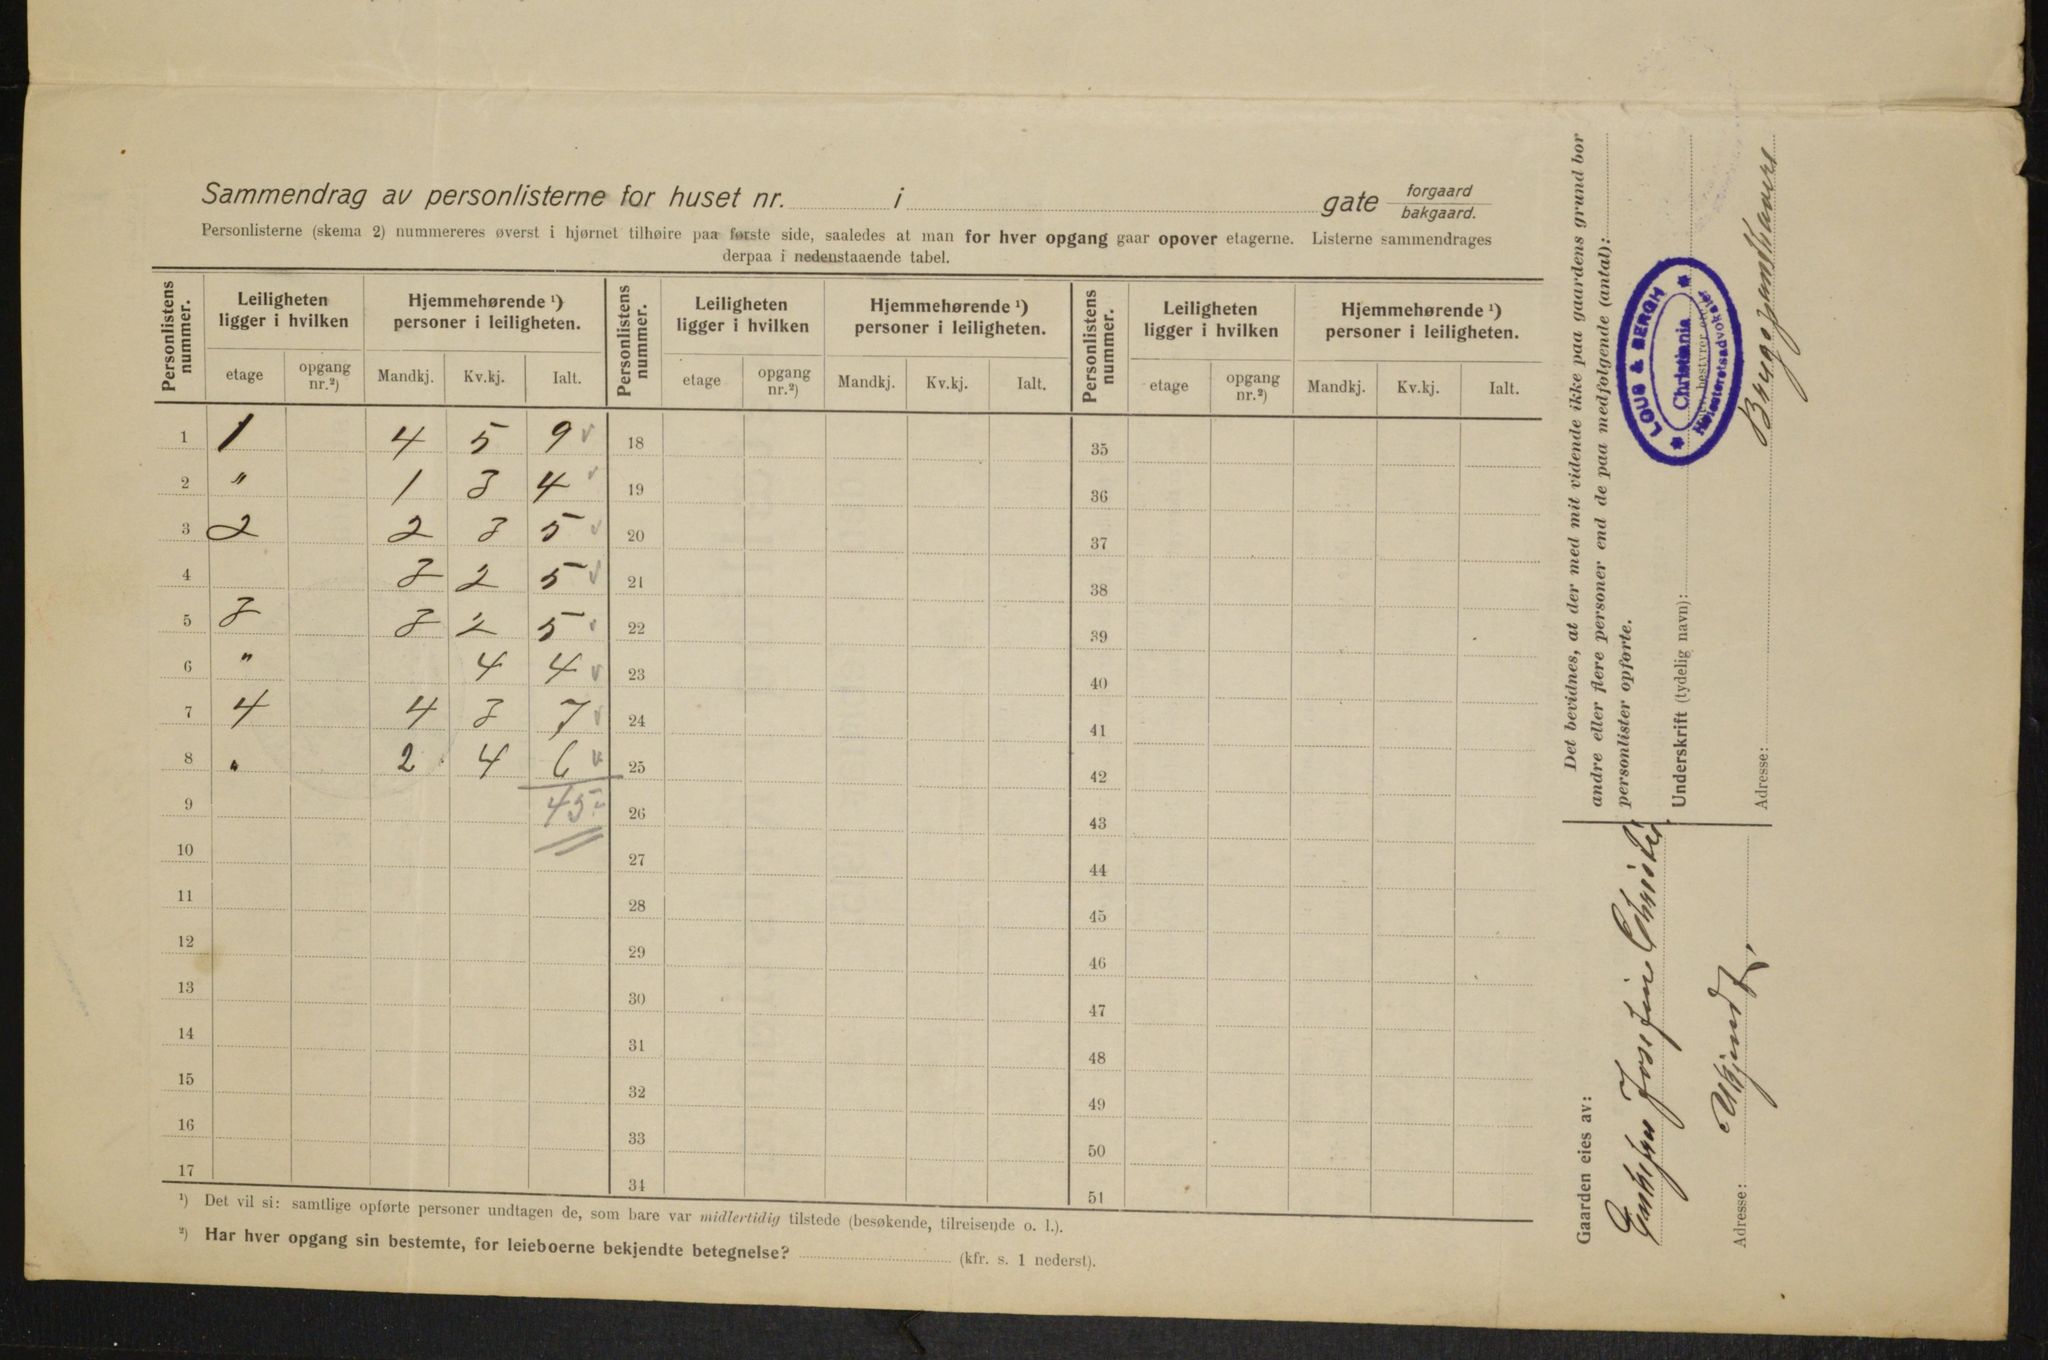 Sammendrag av personlisterne for huset nr. i gate forgaard bakgaard.
Personlisterne (skema 2) nummereres øverst i hjørnet tilhøire paa første side, saaledes at man for hver opgang gaar opover etagerne. Listerne sammendrages
derpaa i nedenstaaende tabel.
Personlistens nummer. Leiligheten ligger i hvilken Hjemmehørende ¹) personer i leiligheten. Personlistens nummer. Leiligheten ligger i hvilken Hjemmehørende ¹) personer i leiligheten. Personlistens nummer. Leiligheten ligger i hvilken Hjemmehørende ¹) personer i leiligheten.
etage opgang nr.²) Mandkj. Kv.kj. Ialt. etage opgang nr.²) Mandkj. Kv.kj. Ialt. etage opgang nr.²) Mandkj. Kv.kj. Ialt.
1 1 4 5 9 v 18 35
2 " 1 3 4 v 19 36
3 2 2 3 5 v 20 37
4 3 2 5 v 21 38
5 3 3 2 5 v 22 39
6 " 4 4 v 23 40
7 4 4 3 7 v 24 41
8 " 2 4 6 v 25 42
9 45 26 43
10 27 44
11 28 45
12 29 46
13 30 47
14 31 48
15 32 49
16 33 50
17 34 51
¹) Det vil si: samtlige opførte personer undtagen de, som bare var midlertidig tilstede (besøkende, tilreisende o. l.).
²) Har hver opgang sin bestemte, for leieboerne bekjendte betegnelse? (kfr. s. 1 nederst).
Det bevidnes, at der med mit vidende ikke paa gaardens grund bor
andre eller flere personer end de paa medfølgende (antal):
personlister opførte.
Underskrift (tydelig navn):
LOUS & BERGH
Christiania
Høiesteretsadvokater
bestyrer
Adresse:
Gaarden eies av:
Josefine Christie
Adresse: Ukjendt